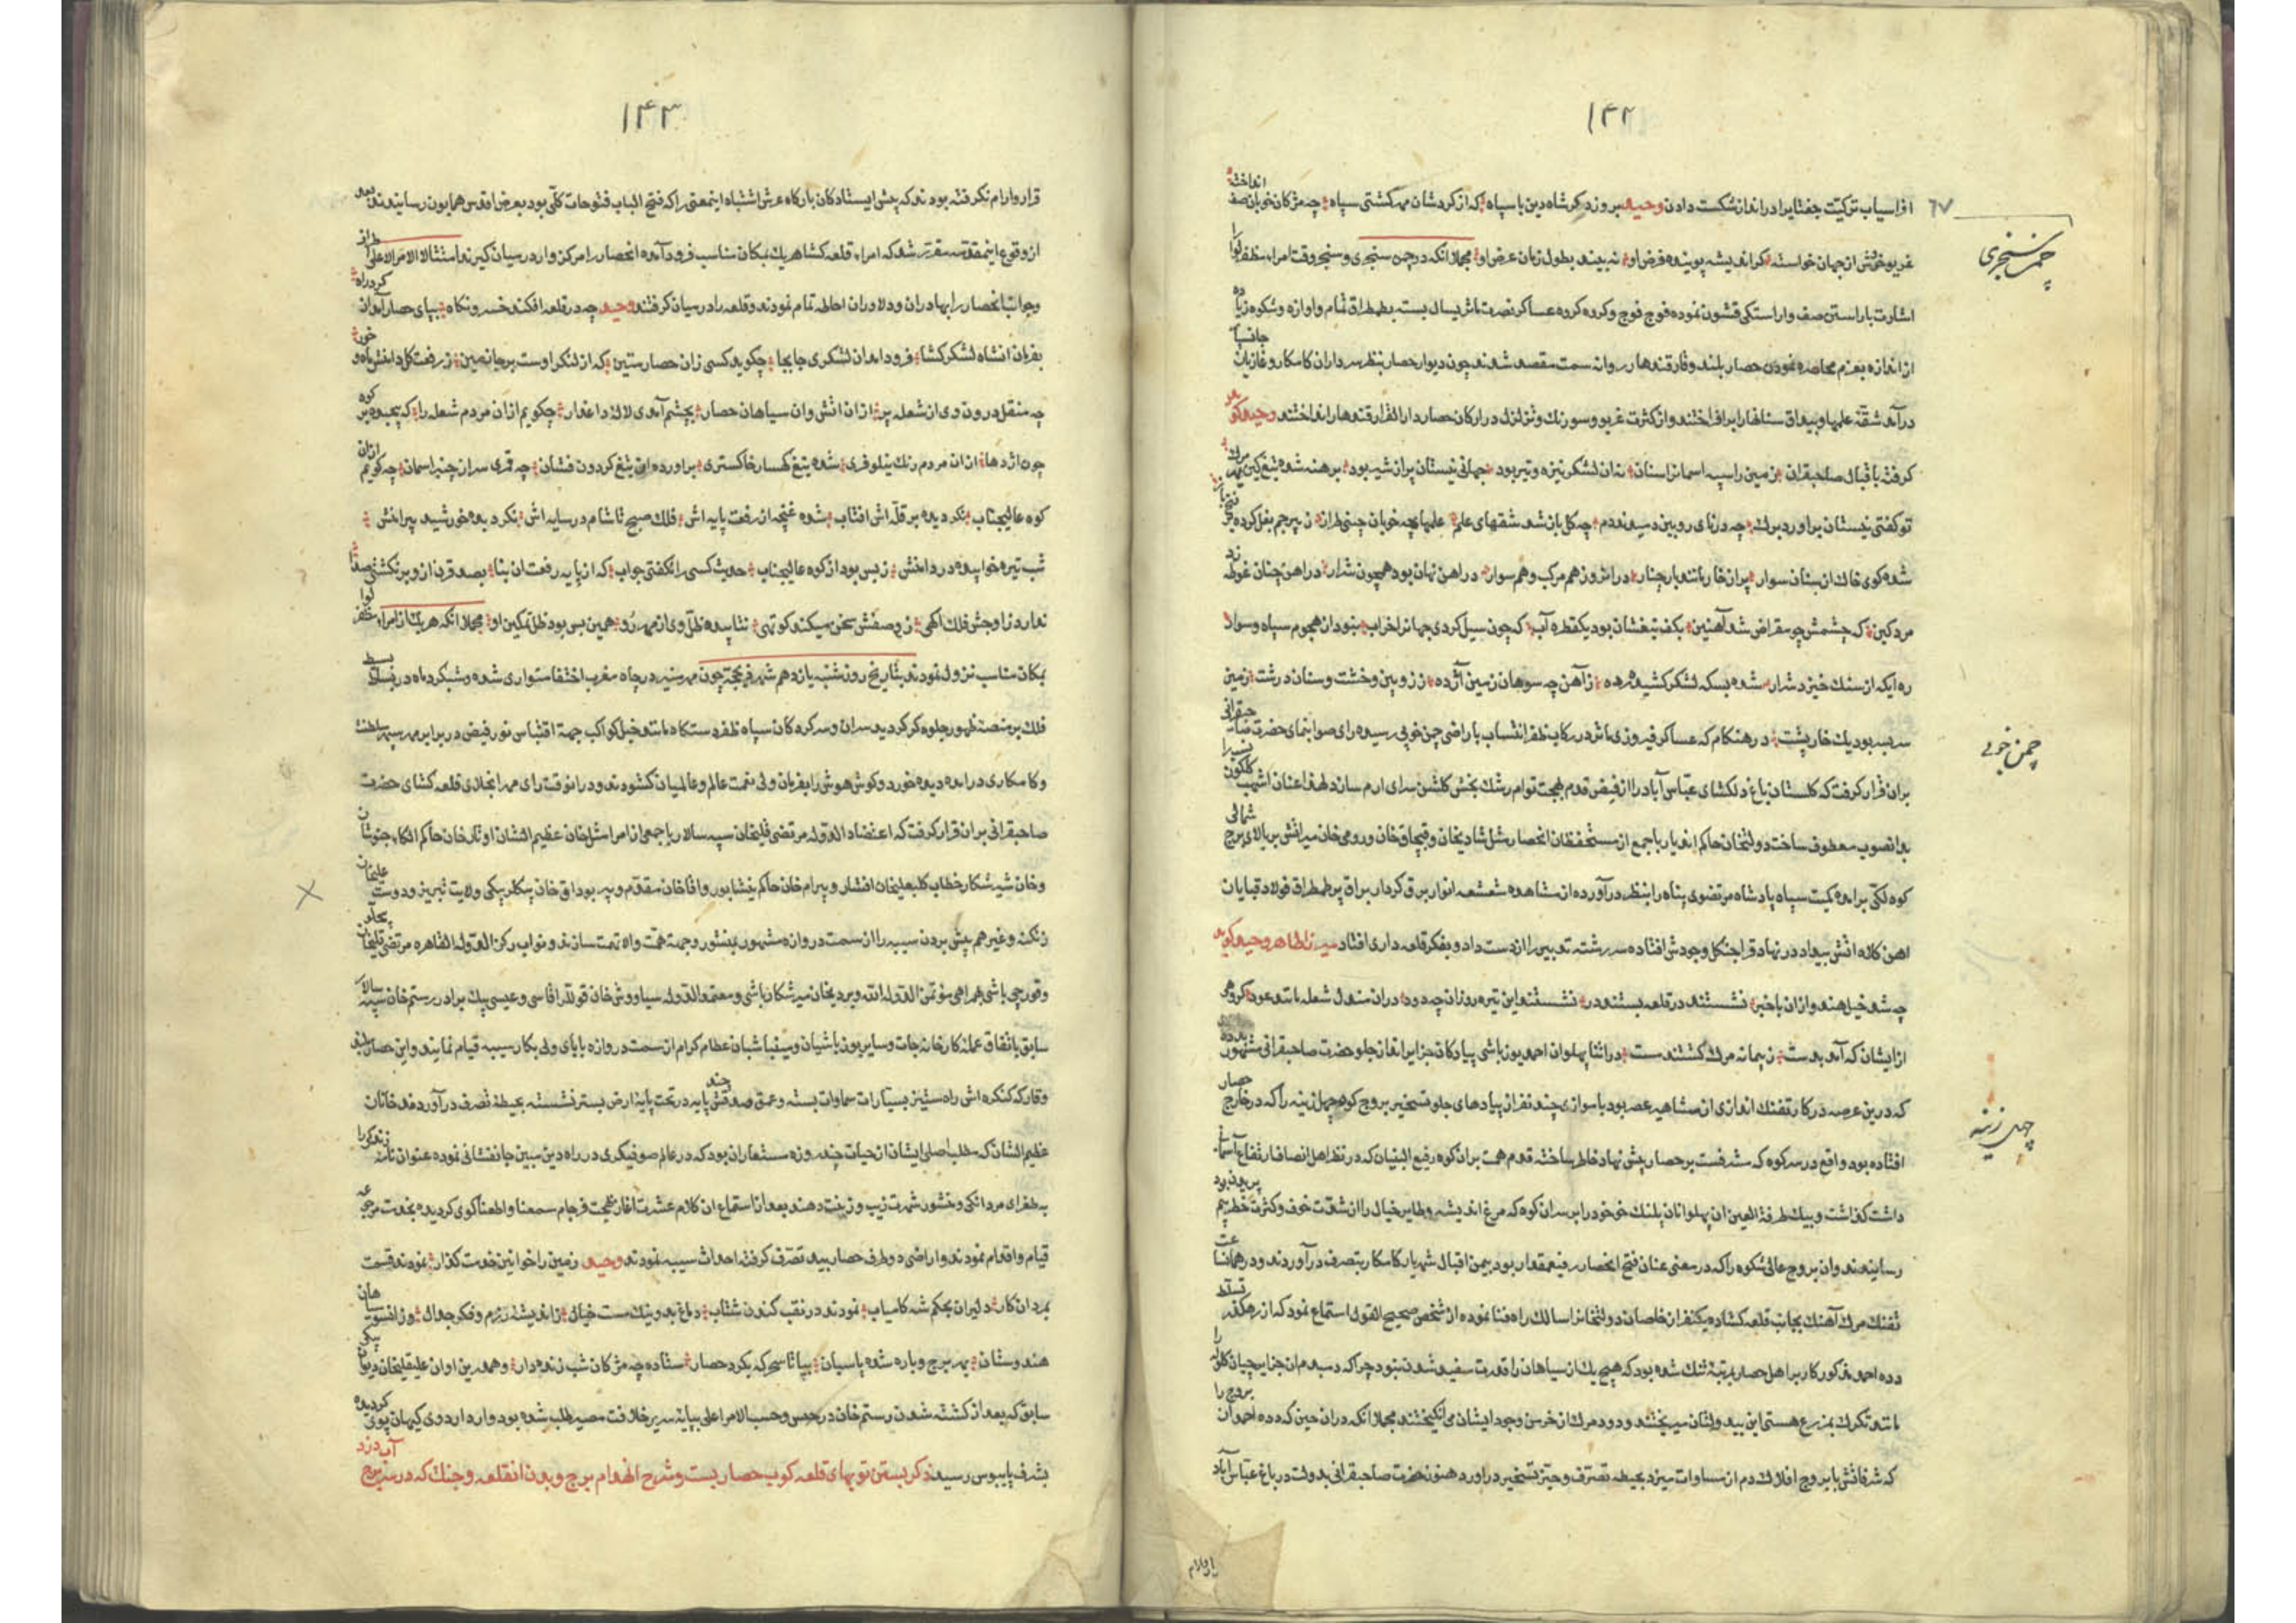 ۱۴۲
افراسیاب ترکیت جغتایرا در اندازشکست دادن وحید بروز دکر شاه دین با سپاه که از کردشان مهر کشتی سیاه چه مژکان خوبان صف
انداخته
۶۷
چمن سنجری
غریو خوش از جهان خواسته کر اندیشه پوینده فرض او نه بیند بطول زمان عرض او مجملا انکه در چمن سنجری و سنجر وقت امراء ظفر لوا را
اشارت باراستن صف واراستکی قشون نموده فوج فوج و کروه کروه عساکر نصرت ماثر یسال بسته بطمطراق تمام واوازه وشکوه زیاده
از اندازه بعزم محاصره نمودن حصار بلند وقار قندهار روانه سمت مقصد شدند چون دیوار حصار بنظر سرداران کامکار و غازیان جانسپار
درآمد شقه علمها وبیداق سنانها را برافراختند واز کثرت غریو وسورنک وتزلزل در ارکان حصار دار القرار قندهار انداختند وحید کوید
کرفته باقبال صاحبقران زمین را سپه اسمانرا سنان نه ان لشکر نیزه و تیر بود جهانی نیستان پر از شیر بود برهنه شده تیغ کین
تو کفتی نیستان براورد برک چه در نای رویین دمیدند دم چه کل باز شد شقهای علم علمها چه خوبان چینی طراز ز پرچم بغل کرده
شده کوی خاک از سنان سوار پر از خار مانند بار چنار در انروز هم مرکب وهم سوار در اهن نهان بود همچون شرار در اهن چنان غوطه زد
مرد کین که چشمش چو مقراض شد آهنین بکف تیغشان بود یکقطره آب که چون سیل کردی جهانرا خراب نبود از هجوم سپاه وسواد
ره ایکه از سنک خیزد شرار شده بسکه لشکر کشید زآهن چه سوهان زمین آژده ززوبین وخشت وسنان درشت زمین
سربسر بود یک خارپشت در هنکام که عساکر فیروزی ماثر در رکاب ظفر انتساب باراضی چمن خوبی رسیده رای صوابنمای حضرت صاحبقرانی
چمن خوبی
بران قرار کرفت که کلستان باغ دلکشای عباس آباد را از فیض قدوم بهجت توام رشک بخش کلشن سرای ارم سازد لهذا عنان اشهب کلکون
بدانصوب معطوف ساخت دولتخان حاکم اندیار با جمع از مستحفظان انحصار مثل شادیخان وقبچاق خان ورومی خان میراتش بر بالای برج شمالی
کوه لکی برامده کمیت سپاه پادشاه مرتضوی پناه را بنظر درآورده از مشاهده شعشعه انوار برق کردار براق پرطمطراق فولاد قبایان
اهن کلاه اتش بیداد در نهاد قرا جنکل وجودش افتاده سر رشته تدبیر را از دست داد و بفکر قلعه داری افتاد میرزا طاهر وحید کوید
چه شد خیل هند وازان باخبر نشستند در قلعه بستند در نشستند این تیره روزان چه دود دران مندل شعله مانند عود
ازایشان که آمد بدست ز پیمانه مرک کشتند مست دراثنا پهلوان احمد یوزباشی پیادکان جزایراندازان جلو حضرت صاحبقرانی مشهور
که درین عرصه در کار تفنک اندازی از مشاهیر عصر بود باموازی چند نفر از پیادهای جلو تسخیر بروج کوه چهل زینه را که در خارج حصار
چهل زینه
افتاده بود واقع در سرکوه که مشرفست بر حصار پیش نهاد خاطر ساخته قدم همت بران کوه رفیع البنیان که در نظر اهل انصاف ارتفاع آسمانی
داشت کذاشت وبیک طرفة العین ان پهلوانان پلنک خو خود را بر سر ان کوه که مرغ اندیشه وطایر خیال را از شدت خوف وکثرت خطر بیم
رسانیدند وان بروج عالی شکوه را که در معنی عنان فتح انحصار رفیعمقدار بود بیمن اقبال شهریار کامکار بتصرف درآوردند ودر همانساعت
تفنک مرک آهنک بجانب قلعه کشاده یکنفر از خاصان دولتخانرا سالک راه فنا نموده از شخص صحیح القول استماع نمود که از رهکذر تسلط
دده احمد مذکور کار بر اهل حصار بمرتبه تنک شده بود که هیچ یک از سیاهان را قدرت سفید شدن نبود چراکه دمبدم ان جزایرچیان کلوله را
مانند تکرک بمزرع هستی این بیدولتان میریختند ودود مرک از خرمن وجود ایشان می انکیختند مجملا انکه دران حین که دده احمد ان بروج را
که شرفاتش بابروج افلاک دم از مساوات میزد بحیطه تصرف وحیز تسخیر دراورد هنوز حضرت صاحبقرانی بدولت در باغ عباس آباد
۱۴۳
قرار وارام نکرفته بودند که پیش ایستادکان بارکاه عرش اشتباه اینمعنی را که فتح الباب فتوحات کلی بود بعرض اقدس همایون رسانیدند بعد
ازوقوع اینمقدمه مقرر شد که امراء قلعه کشا هریک بمکان مناسب فرود آمده انحصار را مرکزوار درمیان کیرند امتثالا لامر الاعلی
وجوانب انحصار را بهادران ودلاوران احاطه تمام نمودند وقلعه را درمیان کرفتند وحید چه در قلعه افکند خسرو نکاه بپای حصار آمدن کرد راه
بفرمان انشاه لشکرکشا فرود امد ان لشکری جابجا چکوید کسی زان حصار متین که از لنکر اوست برجا زمین ز رفعت کل دامنش ماه و خور
چه منقل درون وی از شعله پر ازان اتش وان سیاهان حصار بچشم آمدی لالهٔ داغدار چکویم ازان مردم شعله را که پیچیده بر کوه
چون اژدها ازان مردم رنک نیلوفری شده تیغ کهسار خاکستری براورده این تیغ کردون فشان چه قمری سر از چنبر اسمان چه کویم ازان
کوه عالیجناب نکردیده بر قله اش افتاب شده غنچه از رفعت پایه اش فلک صبح تا شام در سایه اش نکردیده خورشید پیرامنش
شب تیره خوابیده در دامنش زبس بود ازکوه عالیجناب حدیث کسی را نکفتی جواب که از پایه رفعت ان بنا بصد قرن ازو برنکشتی صدا
ندارد ز اوجش فلک اکهی ز وصفش سخن میکند کوتهی نتابیده ظل وی از مهر رو همین بس بود ظل تمکین او مجملا انکه هریک از امراء ظفر لوا
بمکان مناسب نزول نمودند بتاریخ روز شنبه یازدهم شهر ذیحجه چون مهر منیر در چاه مغرب اختفا متواری شده وشبکرد ماه در بساط
فلک بر منصه ظهور جلوه کر کردید سران وسرکردکان سپاه ظفر دستکاه مانند خیل کواکب جهة اقتباس نور فیض در برابر مهر سپهر سلطنت
وکامکاری درامده دیده خورد وکوش هوش را بفرمان ولی نعمت عالم وعالمیان کشودند ودر انوقت رای مهر انجلای قلعه کشای حضرت
صاحبقرانی بران قرار کرفت که اعتضاد الدوله مرتضی قلیخان سپه سالار با جمعی از امرا مثل خان عظیم الشان اوتار خان حاکم الکاء
وخان شیر شکار خطاب کلبعلیخان افشار وبیرام خان حاکم نیشابور واقاخان مقدم وپیر بوداق خان بیکلربیکی ولایت تبریز ودوست علیخان
زنکنه وغیرهم پیش بردن سیبه را از سمت دروازه مشهور بمنشور وجهة همت والا نهمت سازند ونواب رکن الدوله القاهره مرتضی قلیخان پیجلو
وقورچی باشی بهمراهی مؤتمن الدوله الله ویردیخان میرشکارباشی ومعتمد الدوله سیاوش خان قوللر اقاسی وعیسی بیک برادر رستم خان سپه سالار
سابق باتفاق عمله کارخانه جات وسایر یوزباشیان ومینباشیان عظام کرام از سمت دروازه بابای ولی بکار سیبه قیام نمایند واین حصار بلند
وقار که کنکره اش راه ستیز بسیارات سماوات بسته وعمق خندقش پایه در تحت پایهٔ ارض بستر نشسته بحیطه تصرف درآورند خانان
عظیم الشان که مطلب اصلی ایشان از حیات چند روزه مستعار ان بود که در عالم صوفیکری در راه دین مبین جانفشانی نموده عنوان نامهٔ زندکی را
بطغرای مردانکی ومنشور شهرت زیب وزینت دهند بعد از استماع ان کلام عشرت آغاز بهجت فرجام سمعنا واطعنا کوی کردیده بخدمت مرجوعه
قیام واقدام نمودند واراضی دوطرف حصار بید تصرف کرفته احداث سیبه نمودند وحید زمین را خوانین خدمت کذار نمودند قسمت
بمردان کار دلیران بحکم شه کامیاب نمودند در نقب کندن شتاب دماغ بد ونیک مست خیال ز اندیشه رزم وفکر جدال وزانسو سیاهان
هندوستان بهر برج وباره شده پاسبان بپا تا سحر که بکرد حصار ستاده چه مژکان شب زنده دار وهمدرین اوان علیقلیخان دیوان بیکی
سابق که بعد از کشته شدن رستم خان در حبس وحسب الامر اعلی بپایه سریر خلافت مصیر طلب شده بود وارد اردوی کیهان پوی کردیده
بشرف پایبوس رسید ذکر بستن توپهای قلعه کوب حصار بست وشرح انهدام برج وبدن انقلعه وجنک که در سر برج آب دزد